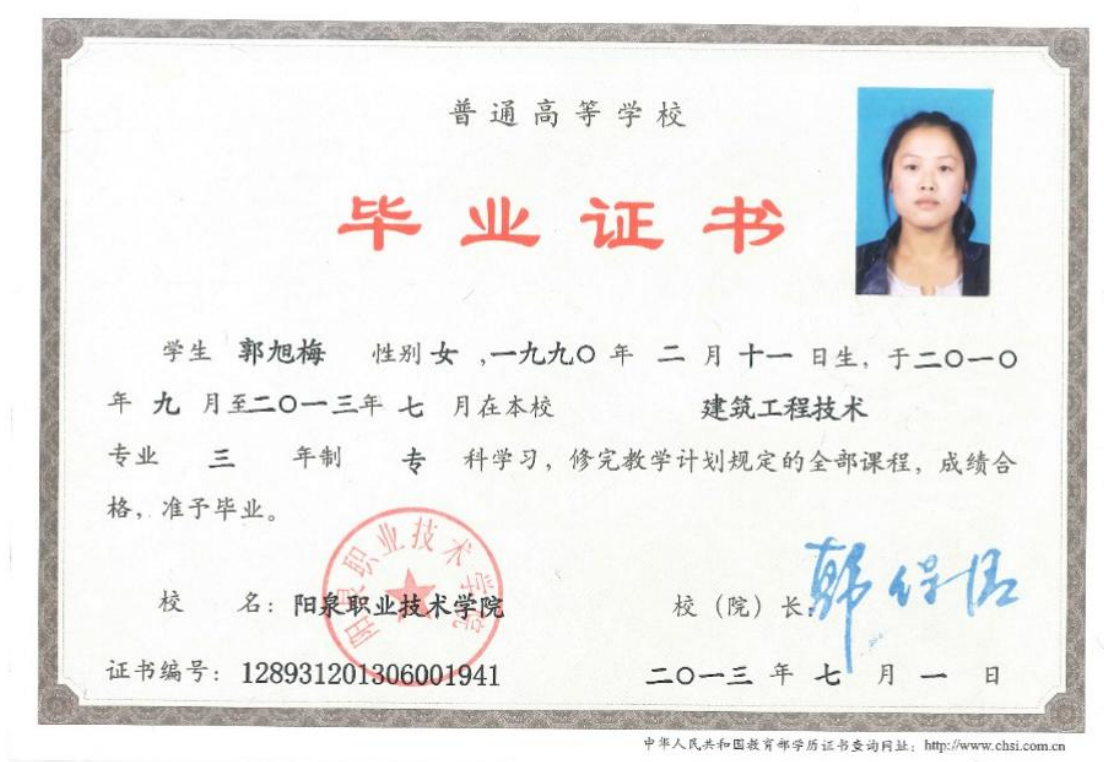 普通高等学校
毕业证书
学生 郭旭梅 性别 女 ,一九九〇 年 二 月 十一 日生, 于二〇一〇
年 九 月至二〇一三年 七 月在本校 建筑工程技术
专业 三 年制 专 科学习, 修完教学计划规定的全部课程, 成绩合
格, 准予毕业。
阳泉职业技术学院
校 名: 阳泉职业技术学院 校 (院) 长:
证书编号: 128931201306001941 二〇一三 年 七 月 一 日
中华人民共和国教育部学历证书查询网址: http://www.chsi.com.cn